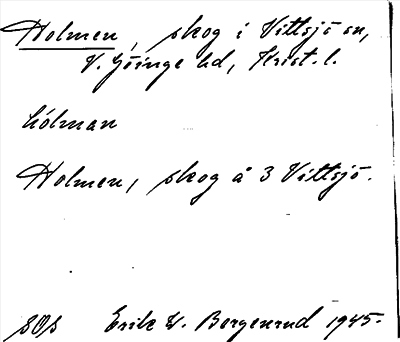 Holmen, skog i Vittsjö sn,
V. Göinge hd, Krist. l.
hólman
Holmen, skog å 3 Vittsjö.
SOS Erik W. Bergenrud 1945.